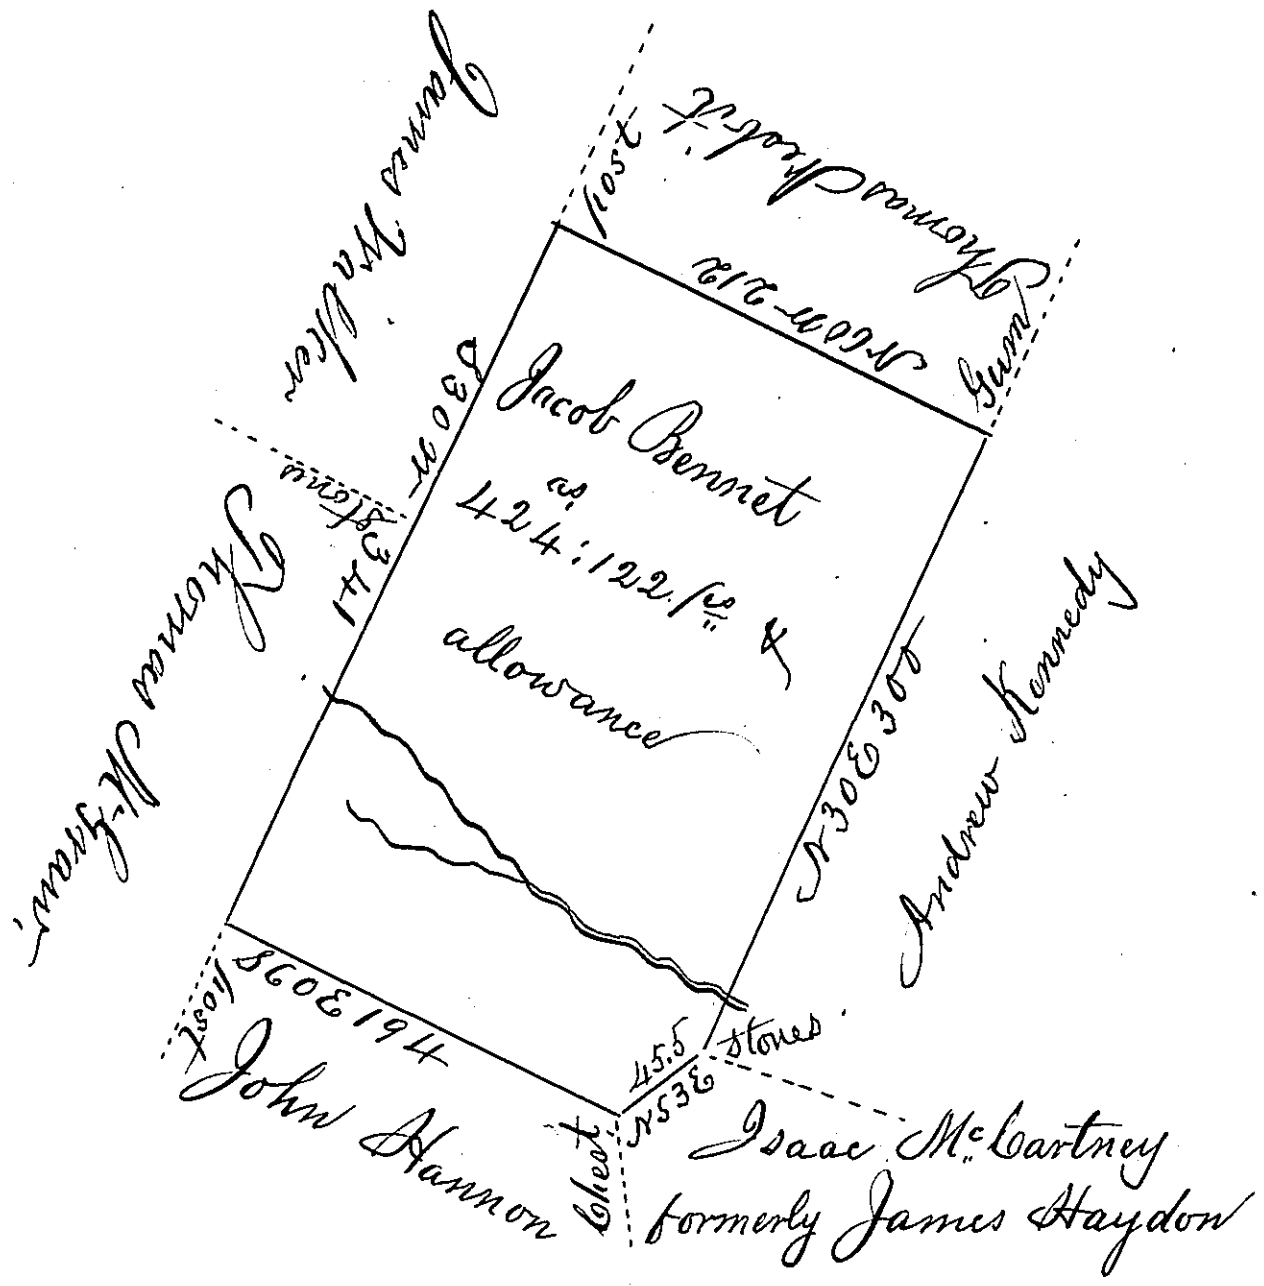 James Walker
post
Thomas
N60W-212
Gum
S30W
341
Stones
Jacob Bennet
as
424:122 ps &
allowance
N30E 308
Andrew Kennedy
Thomas
post
S60E 194
John Hannon
Chest
45.5
N53E
Stones
Isaac McCartney
formerly James Haydon